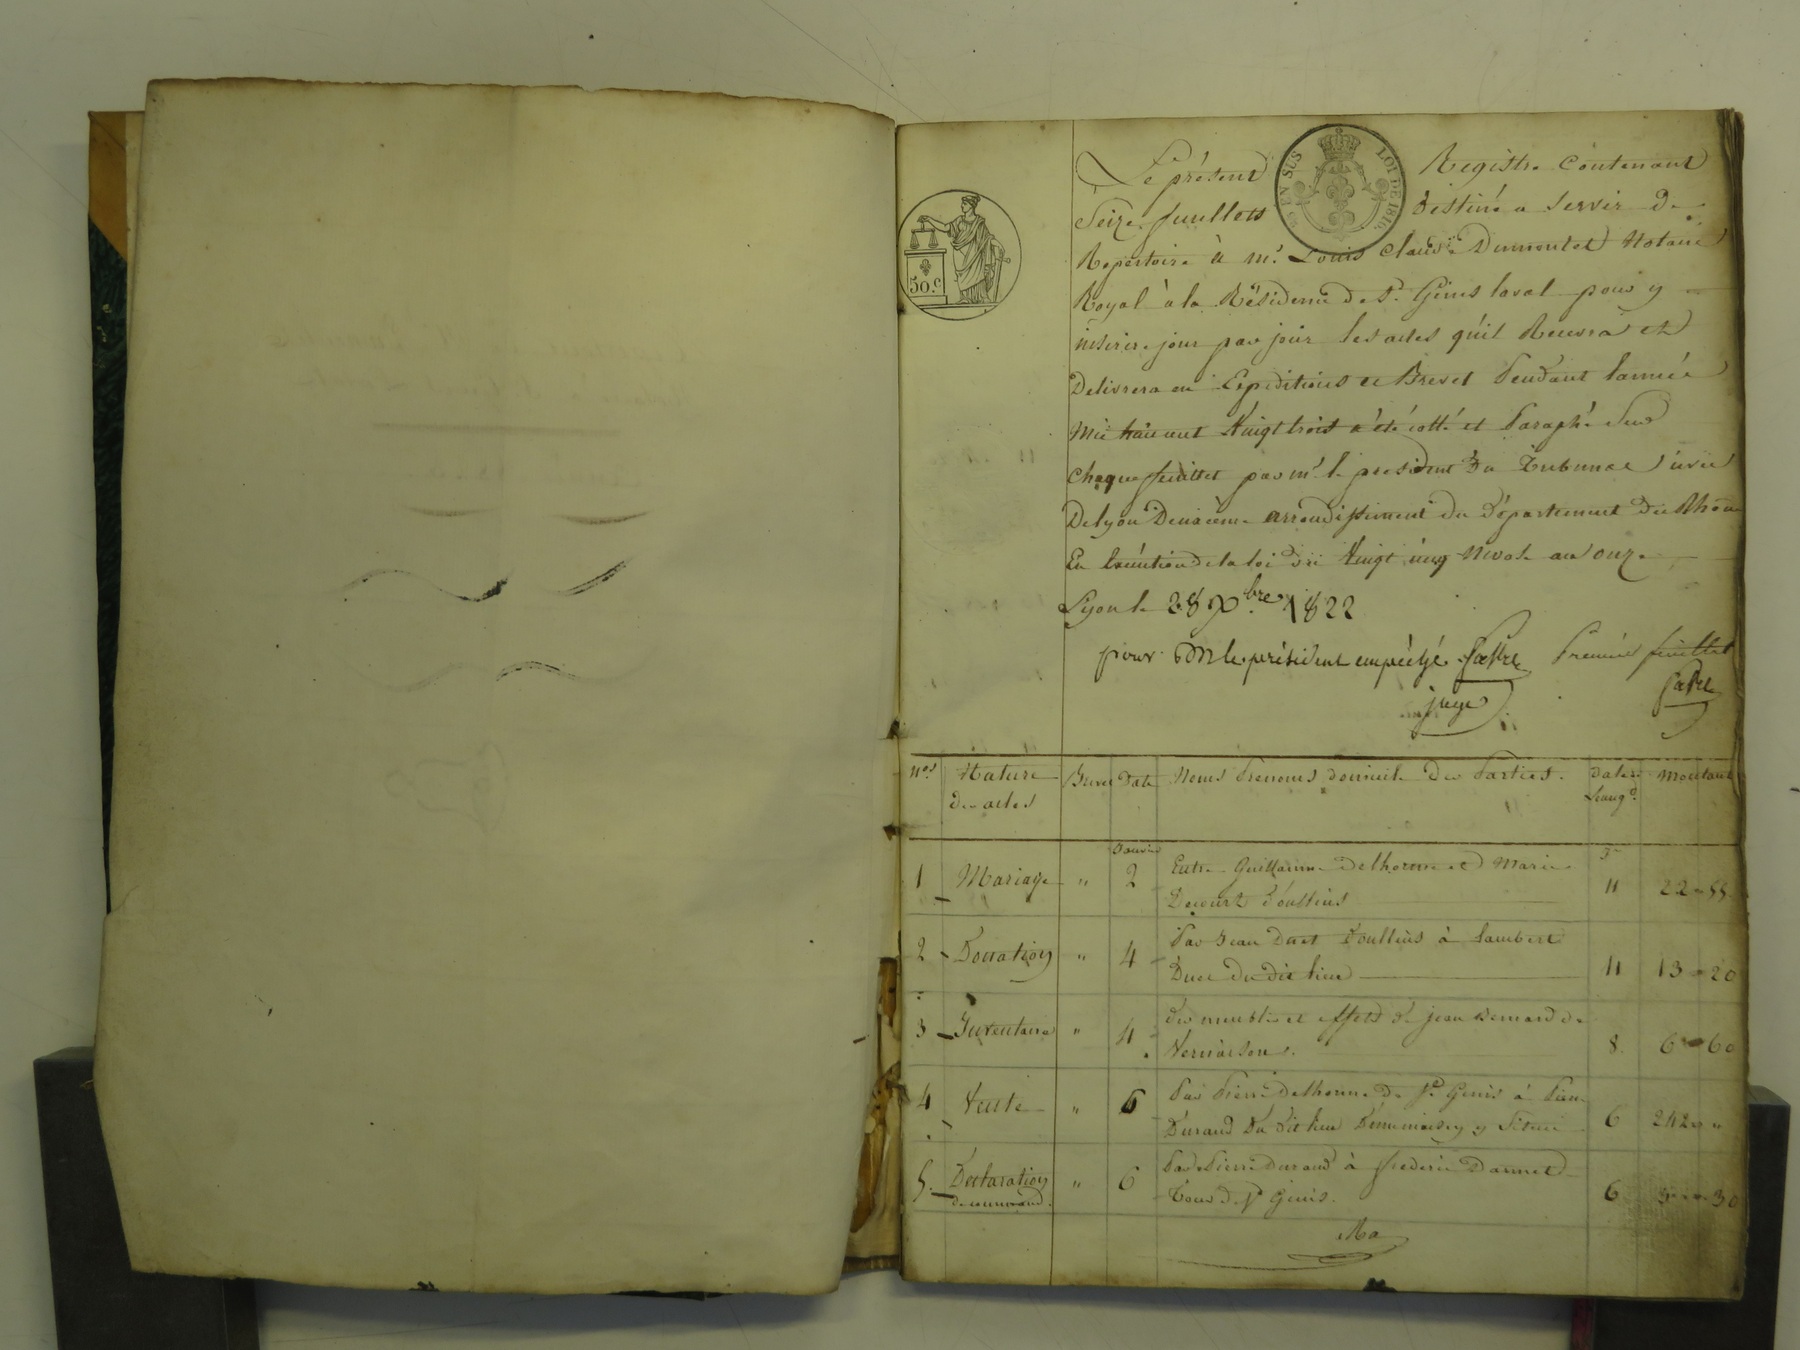 Le présent Registre Contenant
Seize feuillets Destiné a servir de
Repertoire à Mr. Louis Claude Dumontet Notaire
Royal à la Résidence de St. Genis laval pour y
inserire jour par jour les actes qu'il Recevra et
Delivrera en Expeditions et Brevet Pendant l'année
Mil huit cent Vingt trois a été cotté et Paraphé Sur
chaque feuillet par mr. le president du Tribunal Civil
De lyon Deuxième arrondissement du Département du Rhône
En Exécution de la loi du Vingt cinq Nivose an onze
Lyon le 28 Xbre 1822
pour M le président empêché Premier feuillet
juge
EN SUS LOI DE 1816
50.c
nos Nature des actes Brevet Date Noms Prenoms domicile des Parties. Dates Lenregt. Montant
Janvier Jer
1 Mariage " 2 Entre Guillaume Delhorme et Marie
Decourt d'oullins 11 22 55
2 Donation " 4 Par Jean Duet D'oullins à Lambert
Duet du dit lieu 11 13 20
3 Inventaire " 4 des meubles et effets de jean Bernard de
Vernaison. 8 6 60
4 Vente " 6 Par Pierre Delhorme de St Genis à Pierre
Durand Du dit lieu D'une maison y Située 6 242 "
5. Declaration de command. " 6 Par Pierre Durand à frederic
de St Genis. 6 3 30